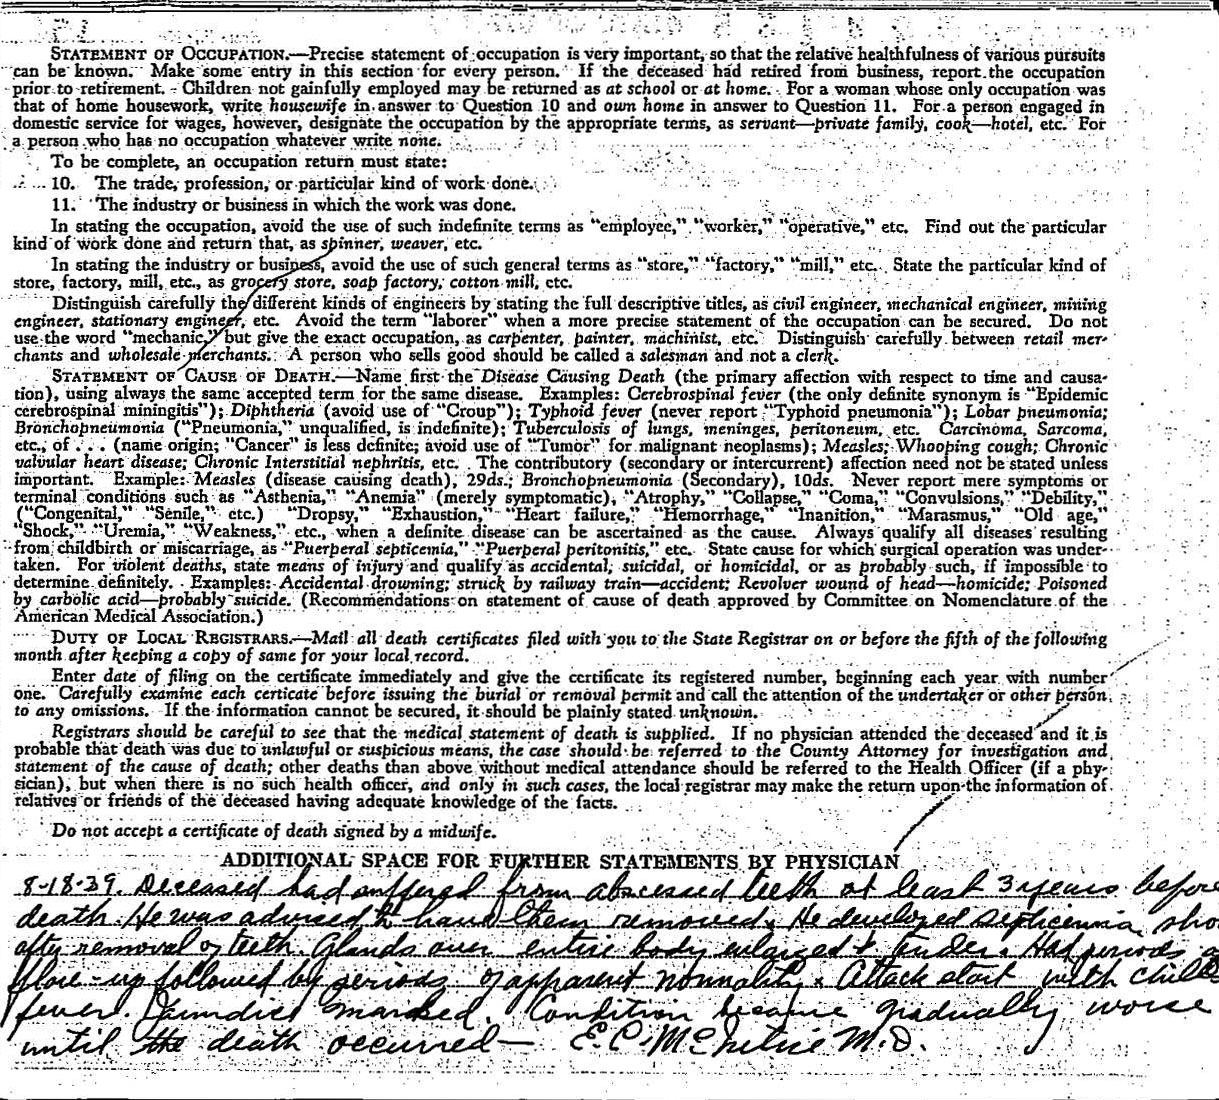 STATEMENT OF OCCUPATION.—Precise statement of occupation is very important, so that the relative healthfulness of various pursuits
can be known. Make some entry in this section for every person. If the deceased had retired from business, report the occupation
prior to retirement. Children not gainfully employed may be returned as at school or at home. For a woman whose only occupation was
that of home housework, write housewife in answer to Question 10 and own home in answer to Question 11. For a person engaged in
domestic service for wages, however, designate the occupation by the appropriate terms, as servant—private family, cook—hotel, etc. For
a person who has no occupation whatever write none.
To be complete, an occupation return must state:
10. The trade, profession, or particular kind of work done.
11. The industry or business in which the work was done.
In stating the occupation, avoid the use of such indefinite terms as "employee," "worker," "operative," etc. Find out the particular
kind of work done and return that, as spinner, weaver, etc.
In stating the industry or business, avoid the use of such general terms as "store," "factory," "mill," etc. State the particular kind of
store, factory, mill, etc., as grocery store, soap factory, cotton mill, etc.
Distinguish carefully the different kinds of engineers by stating the full descriptive titles, as civil engineer, mechanical engineer, mining
engineer, stationary engineer, etc. Avoid the term "laborer" when a more precise statement of the occupation can be secured. Do not
use the word "mechanic," but give the exact occupation, as carpenter, painter, machinist, etc. Distinguish carefully between retail mer-
chants and wholesale merchants. A person who sells good should be called a salesman and not a clerk.
STATEMENT OF CAUSE OF DEATH.—Name first the Disease Causing Death (the primary affection with respect to time and causa-
tion), using always the same accepted term for the same disease. Examples: Cerebrospinal fever (the only definite synonym is "Epidemic
cerebrospinal miningitis"); Diphtheria (avoid use of "Croup"); Typhoid fever (never report "Typhoid pneumonia"); Lobar pneumonia;
Bronchopneumonia ("Pneumonia," unqualified, is indefinite); Tuberculosis of lungs, meninges, peritoneum, etc. Carcinoma, Sarcoma,
etc., of . . . (name origin; "Cancer" is less definite; avoid use of "Tumor" for malignant neoplasms); Measles; Whooping cough; Chronic
valvular heart disease; Chronic Interstitial nephritis, etc. The contributory (secondary or intercurrent) affection need not be stated unless
important. Example: Measles (disease causing death), 29ds.; Bronchopneumonia (Secondary), 10ds. Never report mere symptoms or
terminal conditions such as "Asthenia," "Anemia" (merely symptomatic), "Atrophy," "Collapse," "Coma," "Convulsions," "Debility,"
("Congenital," "Senile," etc.) "Dropsy," "Exhaustion," "Heart failure," "Hemorrhage," "Inanition," "Marasmus," "Old age,"
"Shock," "Uremia," "Weakness," etc., when a definite disease can be ascertained as the cause. Always qualify all diseases resulting
from childbirth or miscarriage, as "Puerperal septicemia," "Puerperal peritonitis," etc. State cause for which surgical operation was under-
taken. For violent deaths, state means of injury and qualify as accidental, suicidal, or homicidal, or as probably such, if impossible to
determine definitely. Examples: Accidental drowning; struck by railway train—accident; Revolver wound of head—homicide; Poisoned
by carbolic acid—probably suicide. (Recommendations on statement of cause of death approved by Committee on Nomenclature of the
American Medical Association.)
DUTY OF LOCAL REGISTRARS.—Mail all death certificates filed with you to the State Registrar on or before the fifth of the following
month after keeping a copy of same for your local record.
Enter date of filing on the certificate immediately and give the certificate its registered number, beginning each year with number
one. Carefully examine each certicate before issuing the burial or removal permit and call the attention of the undertaker or other person
to any omissions. If the information cannot be secured, it should be plainly stated unknown.
Registrars should be careful to see that the medical statement of death is supplied. If no physician attended the deceased and it is
probable that death was due to unlawful or suspicious means, the case should be referred to the County Attorney for investigation and
statement of the cause of death; other deaths than above without medical attendance should be referred to the Health Officer (if a phy-
sician), but when there is no such health officer, and only in such cases, the local registrar may make the return upon the information of
relatives or friends of the deceased having adequate knowledge of the facts.
Do not accept a certificate of death signed by a midwife.
ADDITIONAL SPACE FOR FURTHER STATEMENTS BY PHYSICIAN
8-18-39. Deceased had suffered from abscessed teeth at least 3 years before
death. He was advised to have them removed. He developed septicemia sho
after removal of teeth. Glands over entire body enlarged & tender. Had periods
flare-up followed by periods of apparent normality. Attack start with chills
fever. Jaundice marked. Condition became gradually worse
until the death occurred— E. C. M.D.